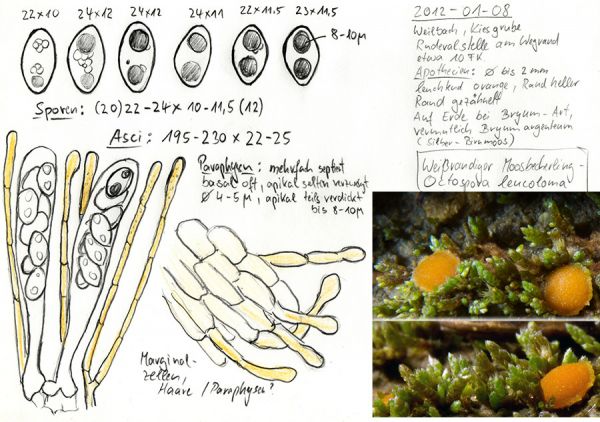 22×10 24×12 24×12 24×11 22×11,5 23×11,5
8-10µ
Sporen: (20) 22-24 × 10-11,5 (12)
Asci: 195-230 × 22-25
Paraphysen: mehrfach septiert
basal oft, apikal selten verzweigt
Ø 4-5µ, apikal teils verdickt
bis 8-10µ
Marginal-
zellen,
Haare / Paraphysen?
2012-01-08
Weilbach, Kiesgrube
Ruderalstelle am Wegrand
etwa 10 FK
Apothecien: Ø bis 2 mm
leuchtend orange, Rand heller
Rand gezähnelt
Auf Erde bei Bryum-Art,
vermutlich Bryum argenteum
(Silber-Birnmoos)
Weißrandiger Moosbecherling -
Octospora leucoloma